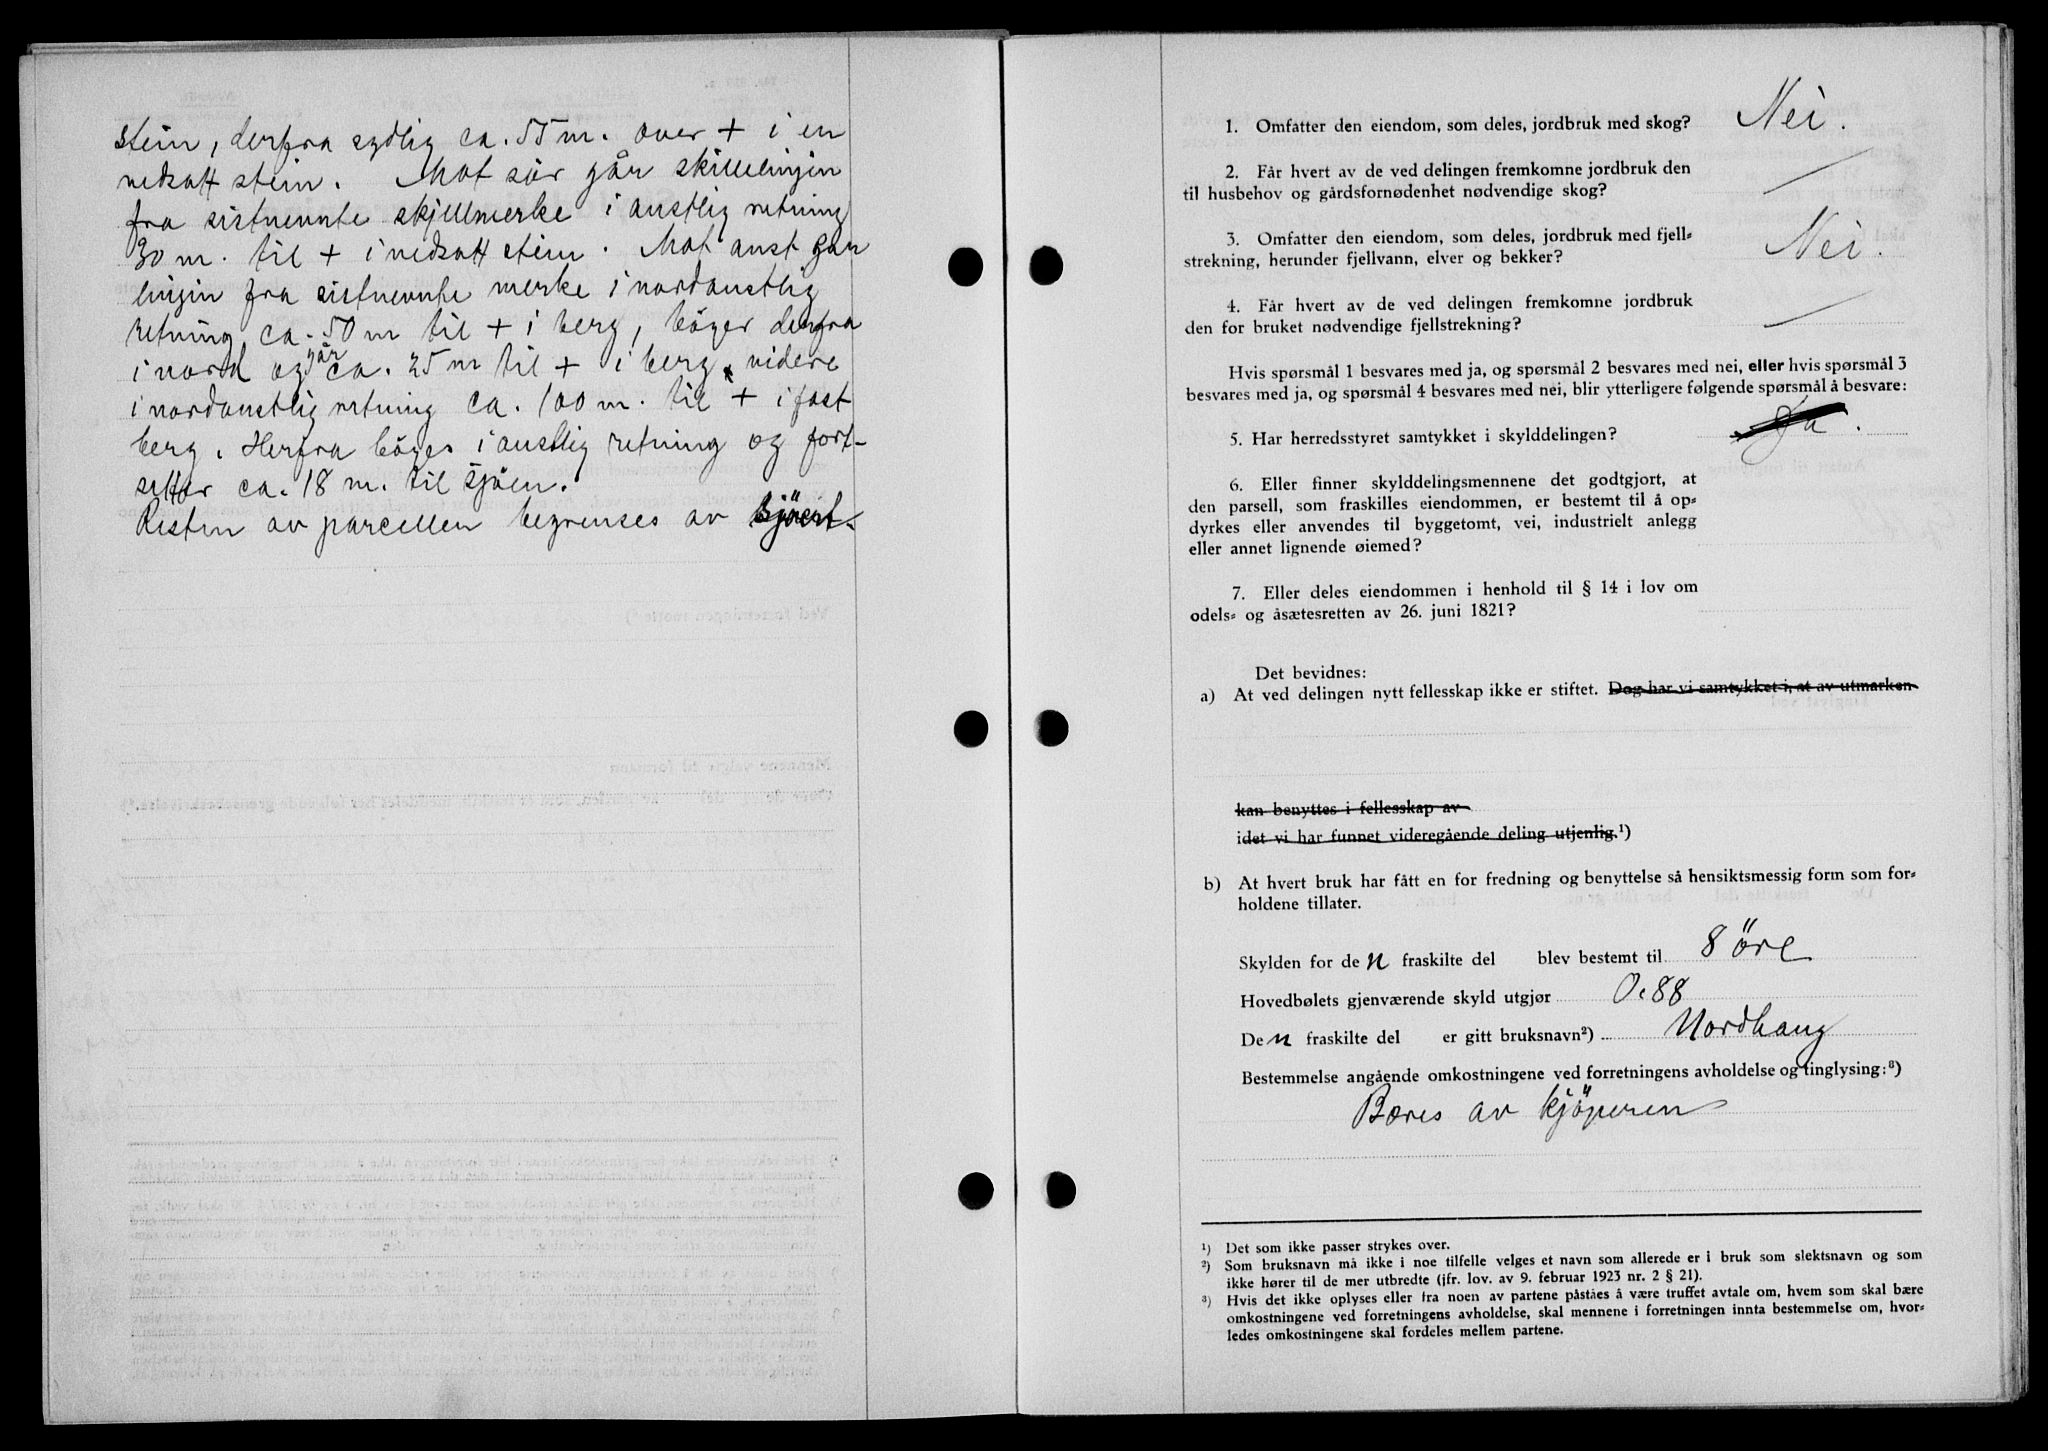 stein, derfra sydlig ca. 55 m. over + i en
nedsatt stein. Mot sör går skillelinjen
fra sistnevnte skjellmerke i austlig retning
30 m. til + i nedsatt stein. Mot aust går
linjen fra sistnevnte merke i nordaustlig
retning ca. 50 m til + i berg, böyer derfra
i nord og går ca. 25 m til + i berg, videre
i nordaustlig retning ca. 100 m. til + i fast
berg. Herfra böyes i austlig retning og fort-
setter ca. 18 m. til sjöen.
Resten av parcellen begrenses av sjöen.
1. Omfatter den eiendom, som deles, jordbruk med skog? Nei.
2. Får hvert av de ved delingen fremkomne jordbruk den
til husbehov og gårdsfornødenhet nødvendige skog? /
3. Omfatter den eiendom, som deles, jordbruk med fjell-
strekning, herunder fjellvann, elver og bekker? Nei.
4. Får hvert av de ved delingen fremkomne jordbruk
den for bruket nødvendige fjellstrekning? /
Hvis spørsmål 1 besvares med ja, og spørsmål 2 besvares med nei, eller hvis spørsmål 3
besvares med ja, og spørsmål 4 besvares med nei, blir ytterligere følgende spørsmål å besvare:
5. Har herredsstyret samtykket i skylddelingen? Ja.
6. Eller finner skylddelingsmennene det godtgjort, at
den parsell, som fraskilles eiendommen, er bestemt til å op-
dyrkes eller anvendes til byggetomt, vei, industrielt anlegg
eller annet lignende øiemed?
7. Eller deles eiendommen i henhold til § 14 i lov om
odels- og åsætesretten av 26. juni 1821?
Det bevidnes:
a) At ved delingen nytt fellesskap ikke er stiftet. Dog har vi samtykket i, at av utmarken
kan benyttes i fellesskap av
idet vi har funnet videregående deling utjenlig.¹)
b) At hvert bruk har fått en for fredning og benyttelse så hensiktsmessig form som for-
holdene tillater.
Skylden for den fraskilte del blev bestemt til 8 öre
Hovedbølets gjenværende skyld utgjør 0.88
Den fraskilte del er gitt bruksnavn²) Nordhaug
Bestemmelse angående omkostningene ved forretningens avholdelse og tinglysing:³)
Bæres av kjöperen
¹) Det som ikke passer strykes over.
²) Som bruksnavn må ikke i noe tilfelle velges et navn som allerede er i bruk som slektsnavn og som
ikke hører til de mer utbredte (jfr. lov. av 9. februar 1923 nr. 2 § 21).
³) Hvis det ikke oplyses eller fra noen av partene påståes å være truffet avtale om, hvem som skal bære
omkostningene ved forretningens avholdelse, skal mennene i forretningen innta bestemmelse om, hvor-
ledes omkostningene skal fordeles mellem partene.